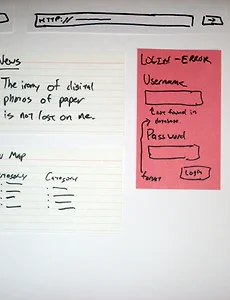 HTTP://
News
The irony of digital
photos of paper
is not lost on me.
Map
Category
LOGIN - ERROR
Username
* not found in
database.
Password
forgot
Login